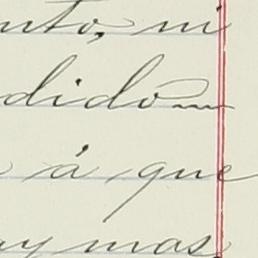 nto, ni
dido
á que
uy mas.